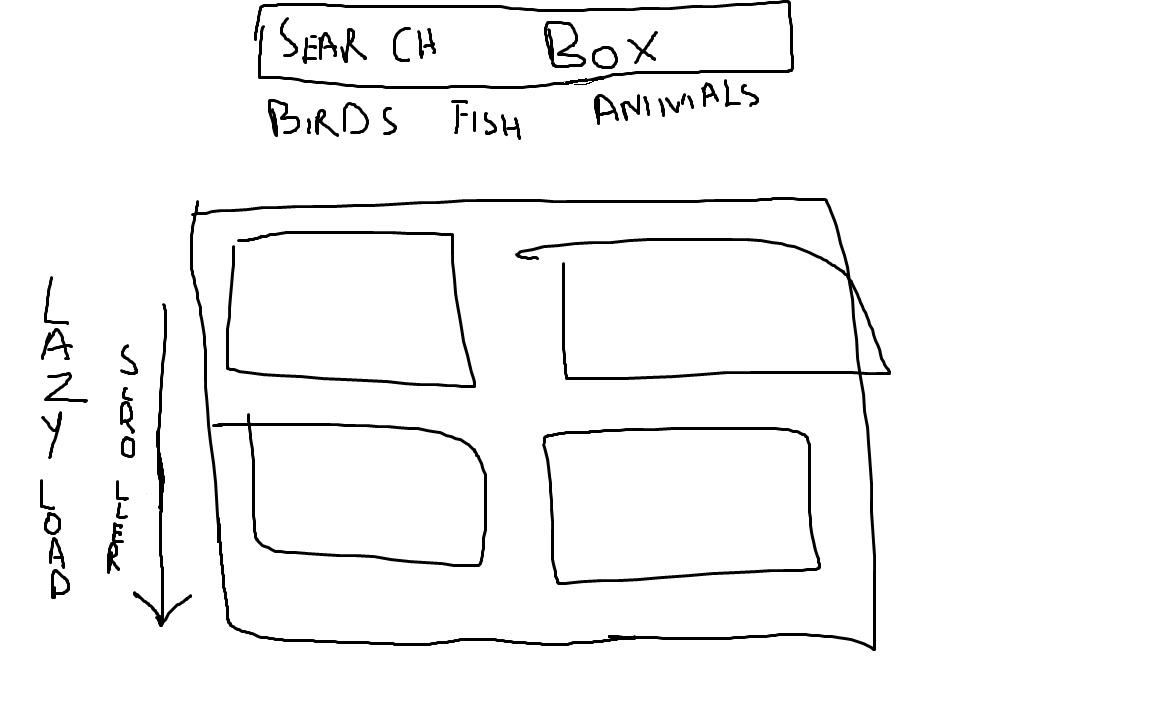 SEARCH BOX
BIRDS FISH ANIMALS
LAZY LOAD
SCROLLER